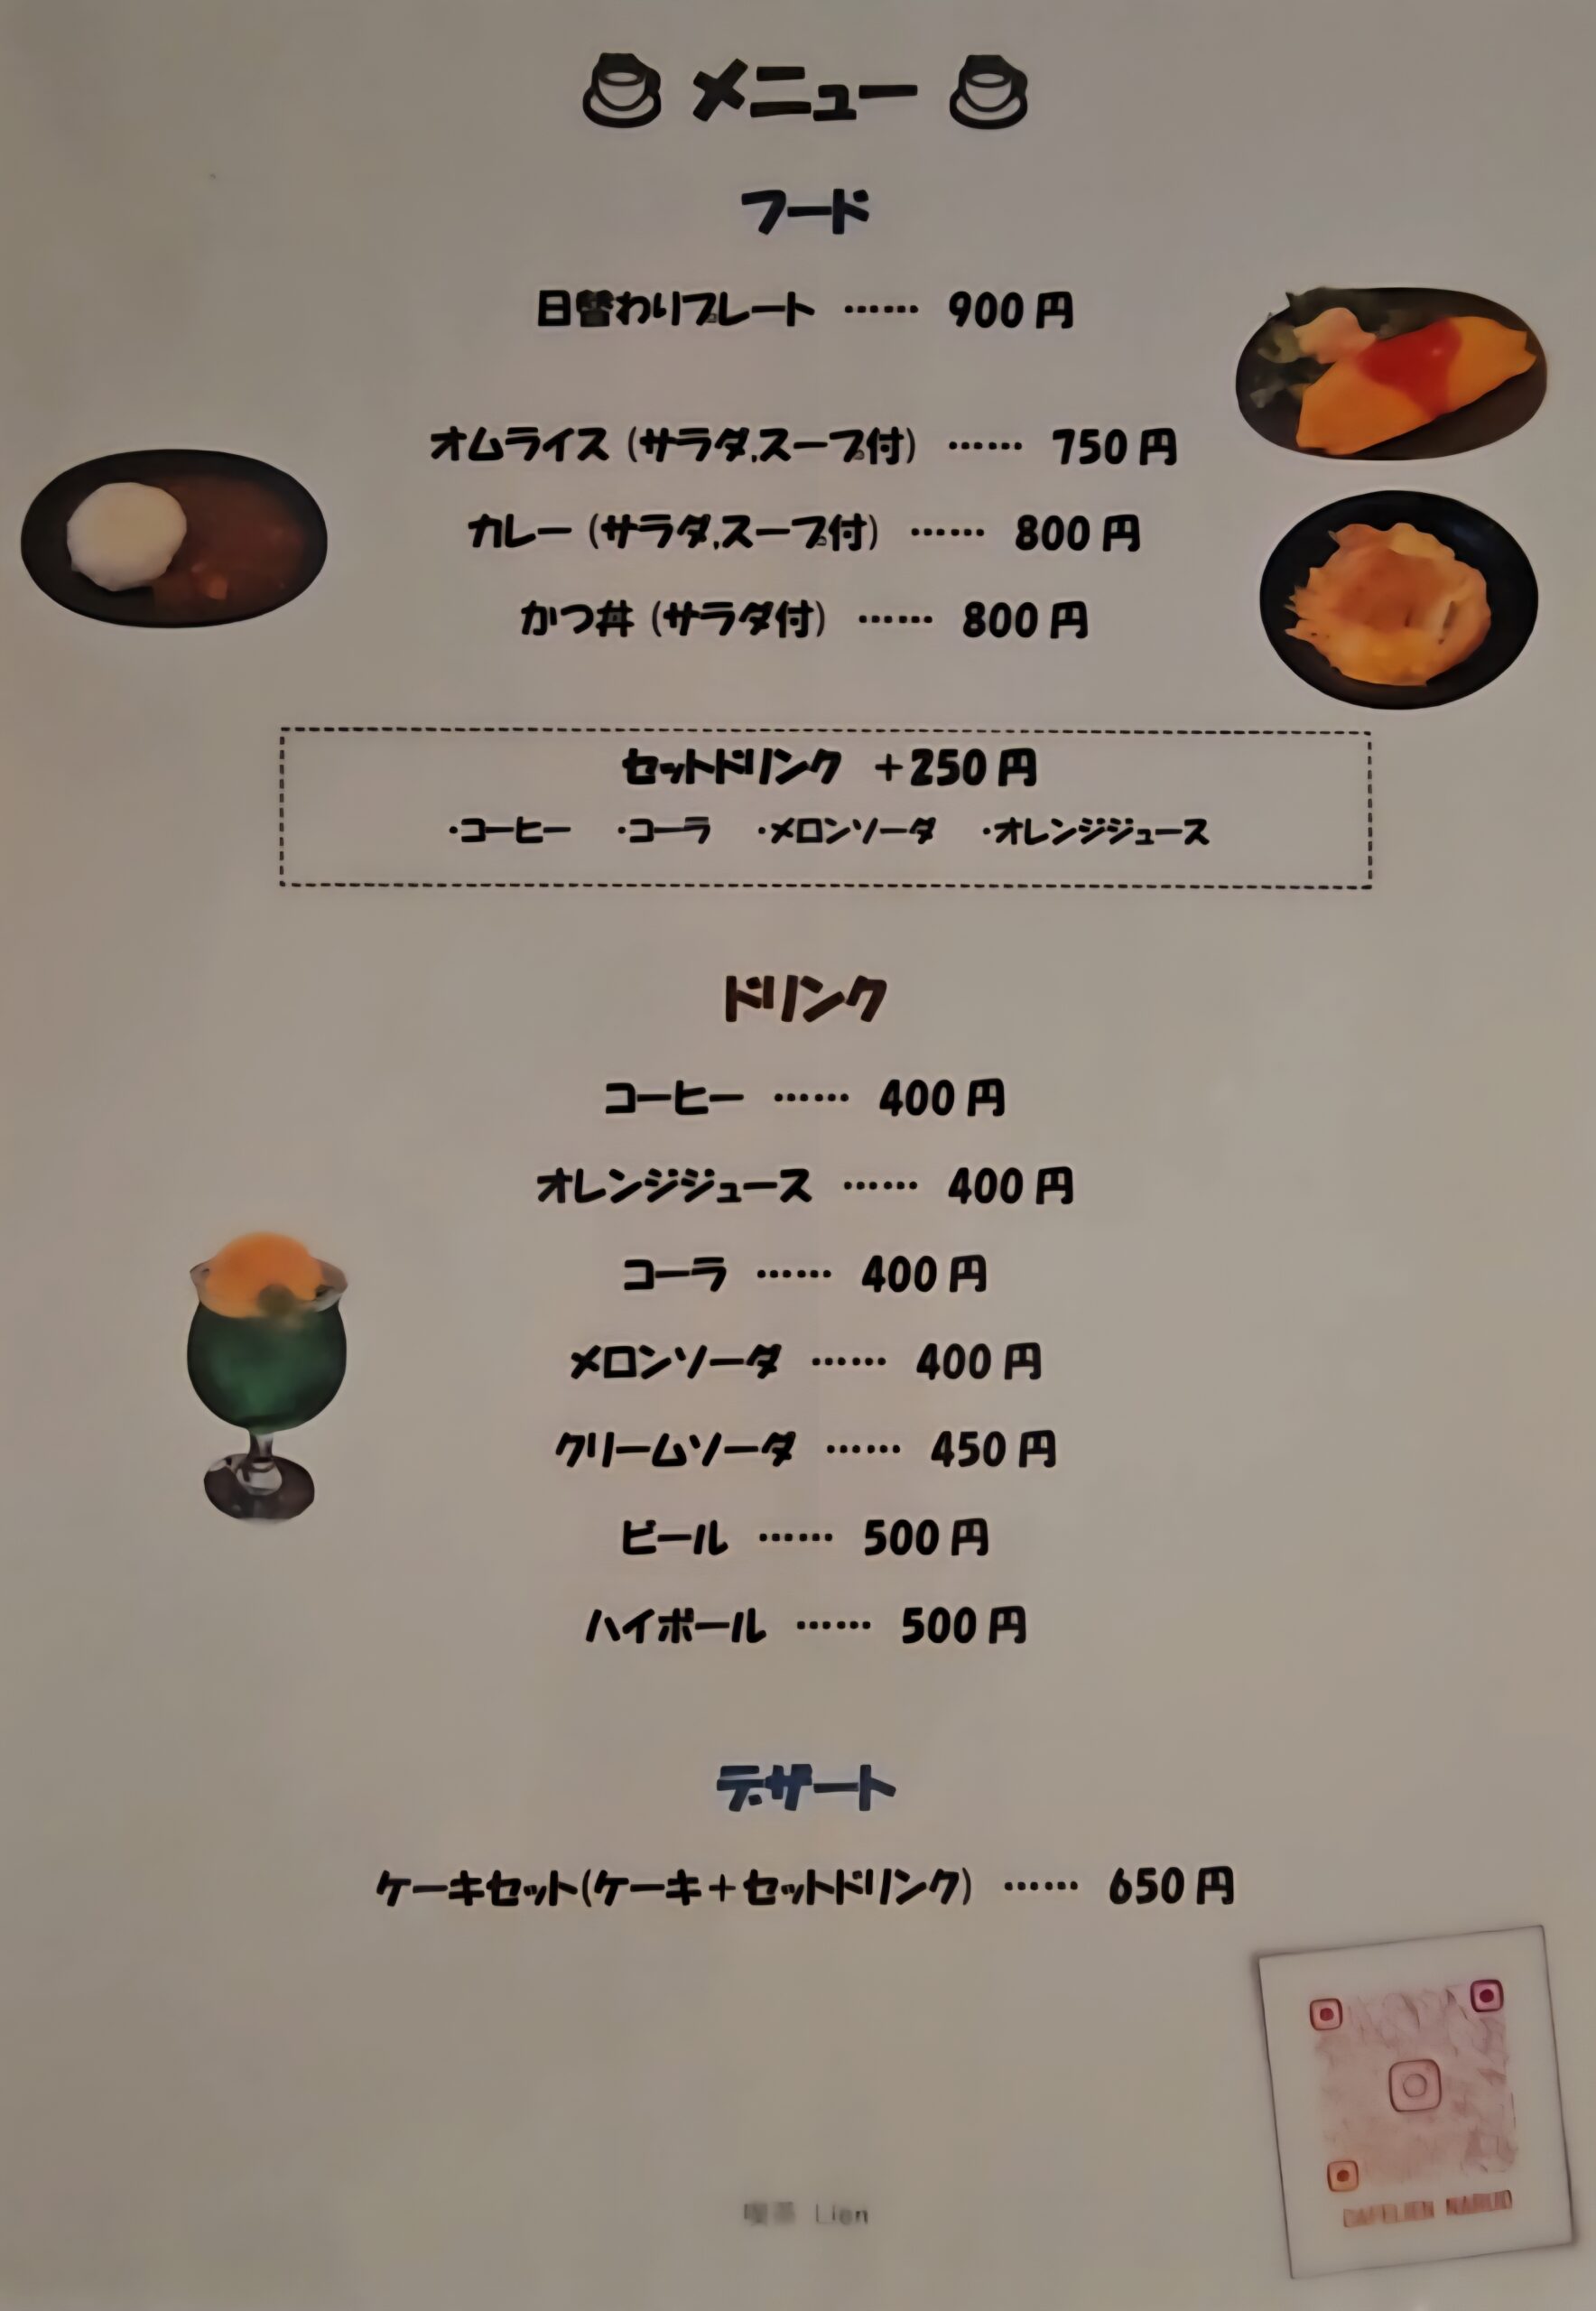 メニュー
フード
日替わりプレート …… 900円
オムライス (サラダ.スープ付) …… 750円
カレー (サラダ.スープ付) …… 800円
かつ丼 (サラダ付) …… 800円
セットドリンク +250円
・コーヒー ・コーラ ・メロンソーダ ・オレンジジュース
ドリンク
コーヒー …… 400円
オレンジジュース …… 400円
コーラ …… 400円
メロンソーダ …… 400円
クリームソーダ …… 450円
ビール …… 500円
ハイボール …… 500円
デザート
ケーキセット(ケーキ+セットドリンク) …… 650円
喫茶 Lien